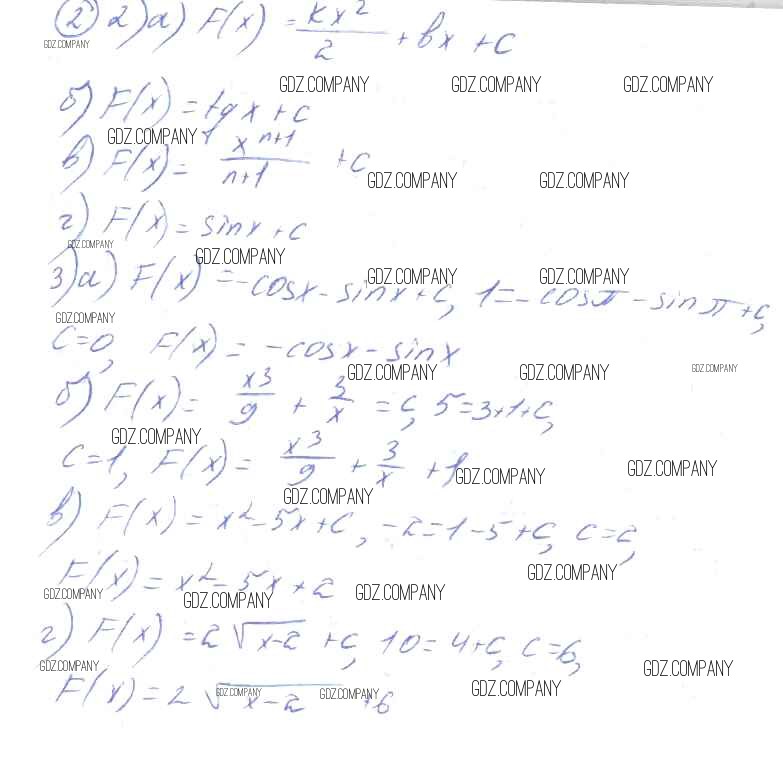 ② 2) а) F(x) = kx²/2 + bx + C
GDZ.COMPANY
GDZ.COMPANY GDZ.COMPANY GDZ.COMPANY
б) F(x) = tg x + C
GDZ.COMPANY
в) F(x) = x^(n+1)/(n+1) + C
GDZ.COMPANY GDZ.COMPANY
г) F(x) = sin x + C
GDZ.COMPANY GDZ.COMPANY
3) а) F(x) = -cos x - sin x + C, 1 = -cos π - sin π + C,
GDZ.COMPANY GDZ.COMPANY
GDZ.COMPANY
C = 0, F(x) = -cos x - sin x
GDZ.COMPANY GDZ.COMPANY GDZ.COMPANY
б) F(x) = x³/9 + 3/x = C, 5 = 3+1+C,
GDZ.COMPANY
C = 1, F(x) = x³/9 + 3/x + 1
GDZ.COMPANY GDZ.COMPANY
GDZ.COMPANY
в) F(x) = x² - 5x + C, -2 = 1 - 5 + C, C = 2,
GDZ.COMPANY
F(x) = x² - 5x + 2
GDZ.COMPANY GDZ.COMPANY GDZ.COMPANY
г) F(x) = 2√(x-2) + C, 10 = 4 + C, C = 6,
GDZ.COMPANY GDZ.COMPANY
F(x) = 2√(x-2) + 6
GDZ.COMPANY GDZ.COMPANY GDZ.COMPANY